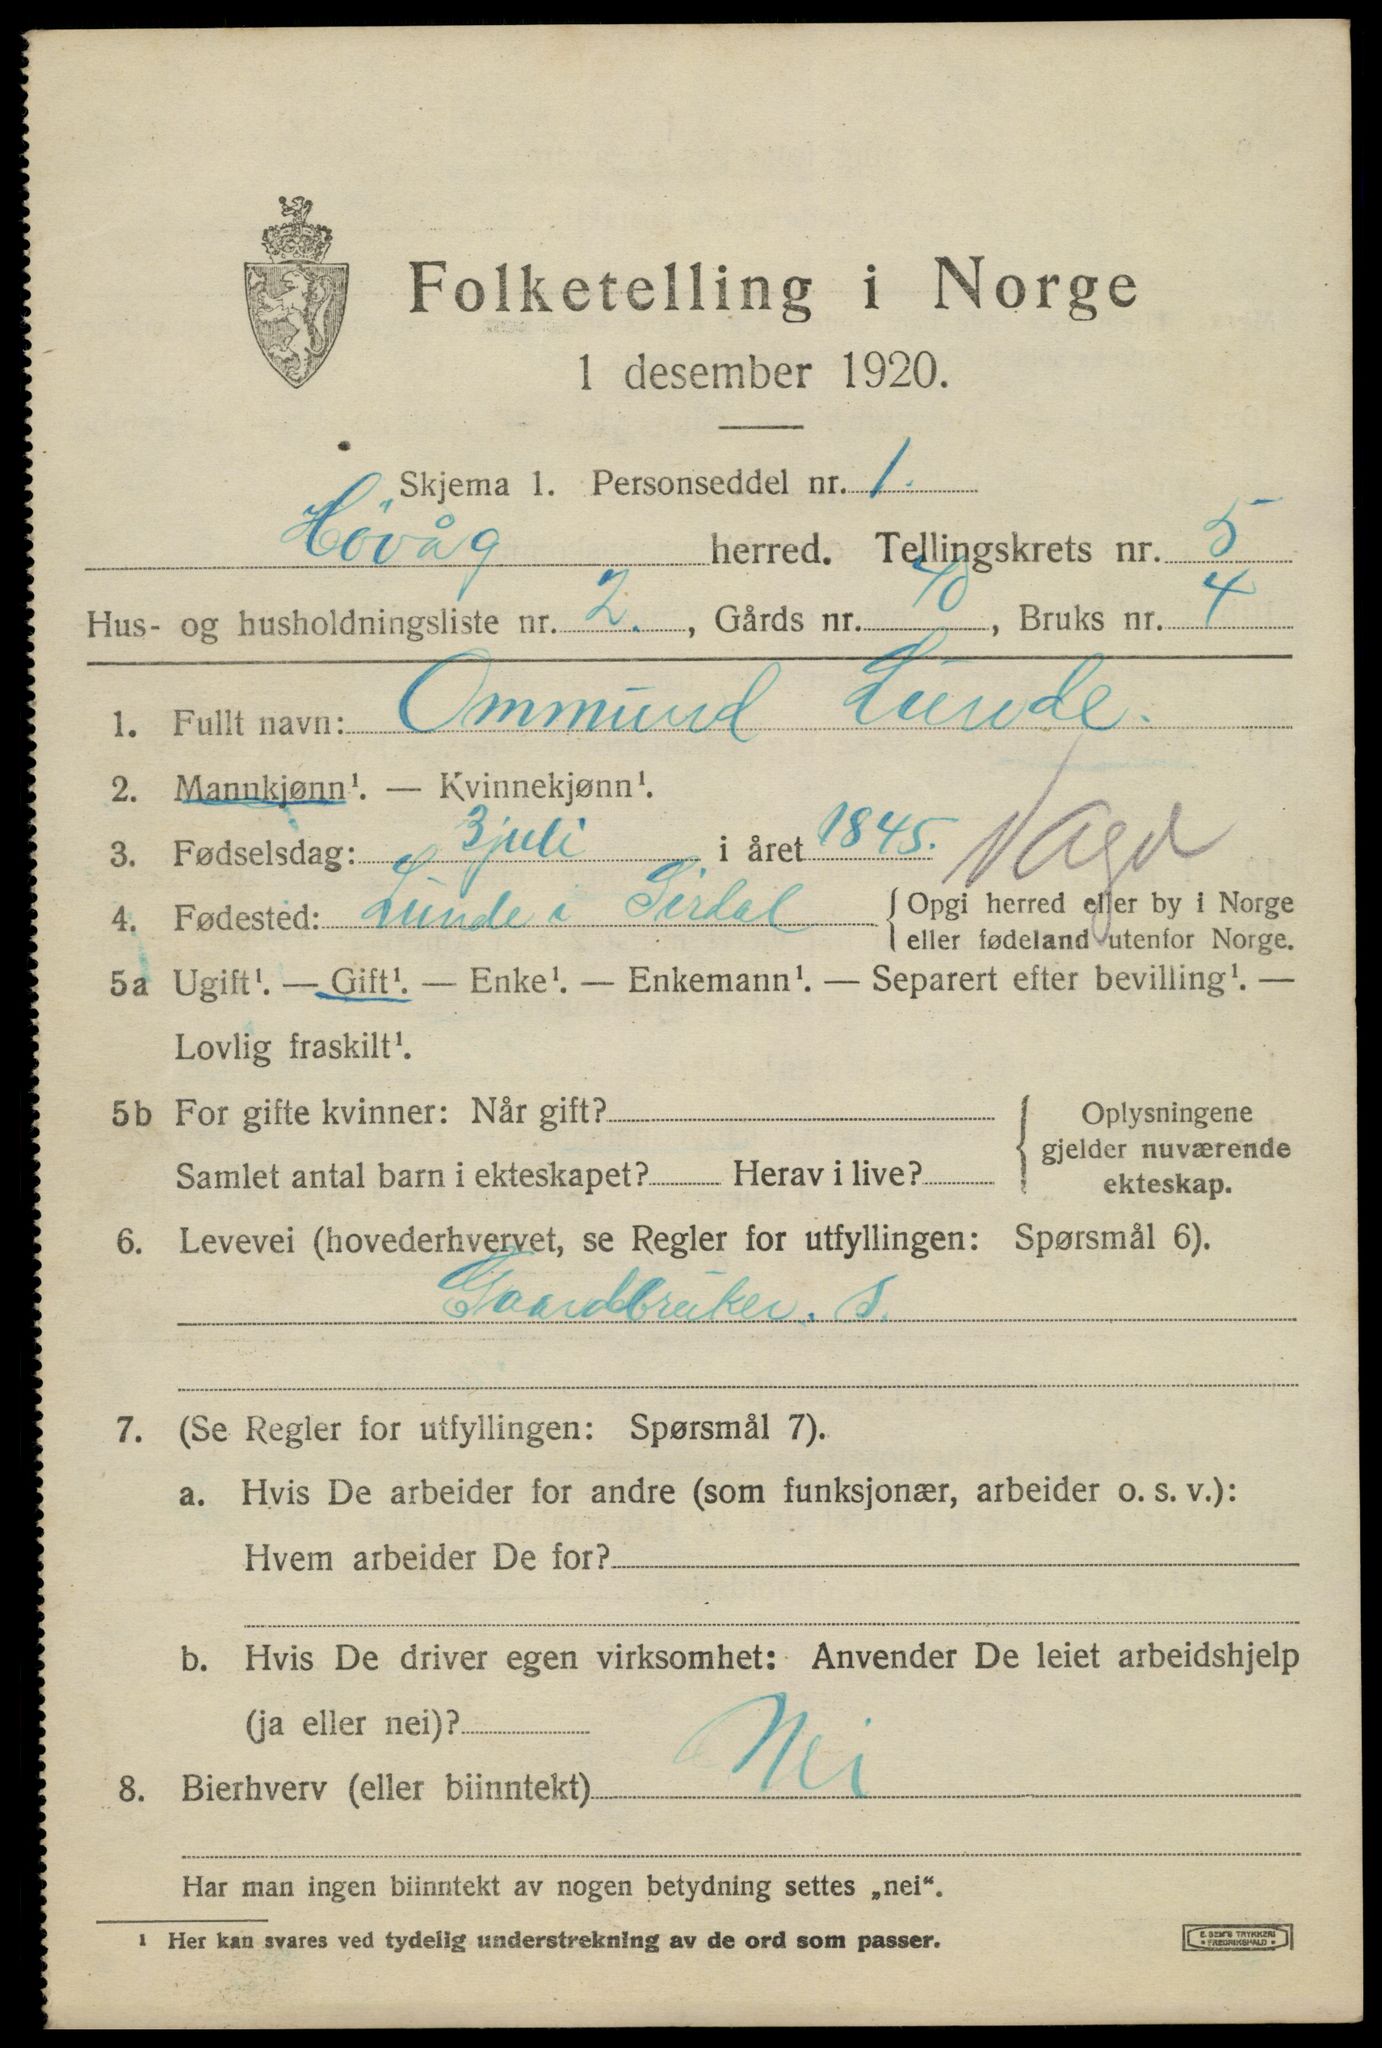 Folketelling i Norge
1 desember 1920.
Skjema 1. Personseddel nr. 1.
Høvåg herred. Tellingskrets nr. 5
Hus- og husholdningsliste nr. 2., Gårds nr. 40, Bruks nr. 4
1. Fullt navn: Ommund Lunde.
2. Mannkjønn¹. — Kvinnekjønn¹.
3. Fødselsdag: 3 juli i året 1845.
4. Fødested: Lunde i Sirdal { Opgi herred eller by i Norge
eller fødeland utenfor Norge.
5a Ugift¹. — Gift¹. — Enke¹. — Enkemann¹. — Separert efter bevilling¹. —
Lovlig fraskilt¹.
5b For gifte kvinner: Når gift? { Oplysningene
gjelder nuværende
Samlet antal barn i ekteskapet? Herav i live? ekteskap.
6. Levevei (hovederhvervet, se Regler for utfyllingen: Spørsmål 6).
Gaardbruker. S.
7. (Se Regler for utfyllingen: Spørsmål 7).
a. Hvis De arbeider for andre (som funksjonær, arbeider o. s. v.):
Hvem arbeider De for?
b. Hvis De driver egen virksomhet: Anvender De leiet arbeidshjelp
(ja eller nei)?
8. Bierhverv (eller biinntekt) Nei
Har man ingen biinntekt av nogen betydning settes „nei“.
¹ Her kan svares ved tydelig understrekning av de ord som passer.
E. SEM'S TRYKKERI
FREDRIKSHALD